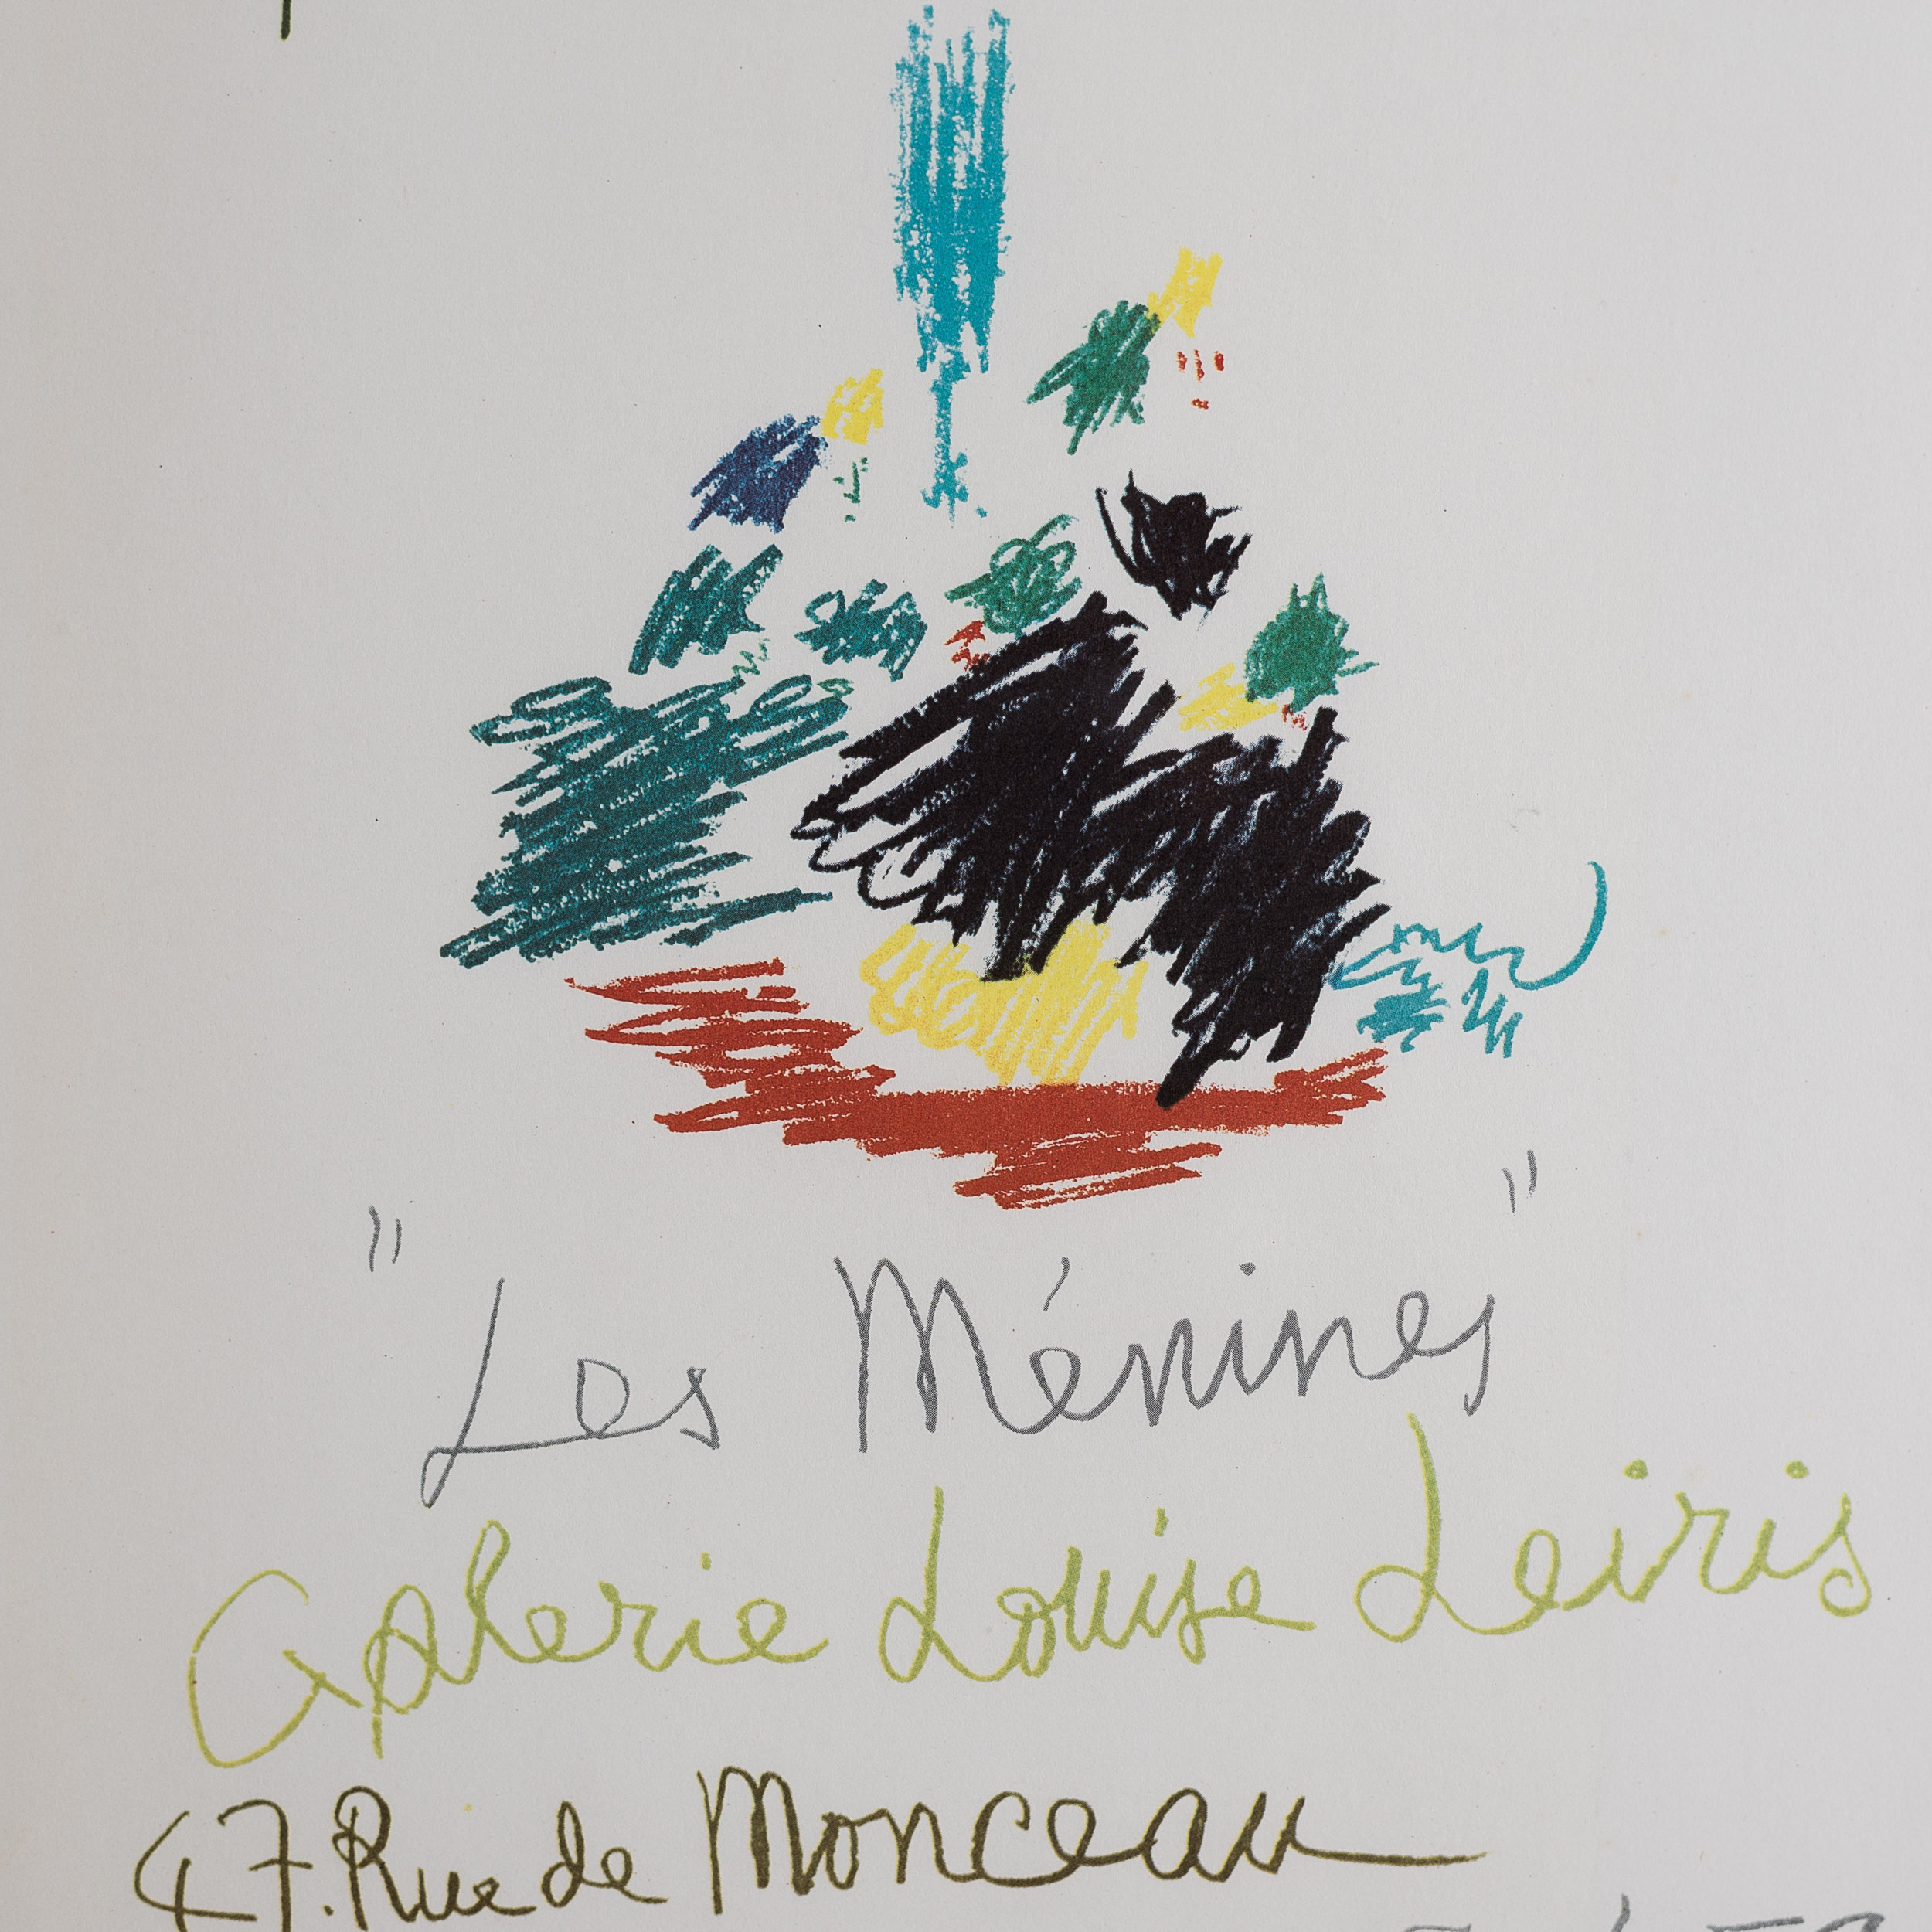 "Les Ménines"
Galerie Louise Leiris
47. Rue de Monceau